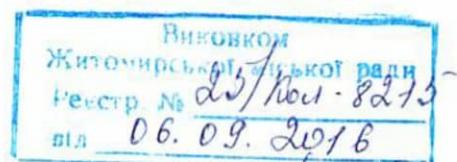 Виконком
Житомирської міської ради
Реєстр. № 25/Кол-8215
від 06. 09. 2016